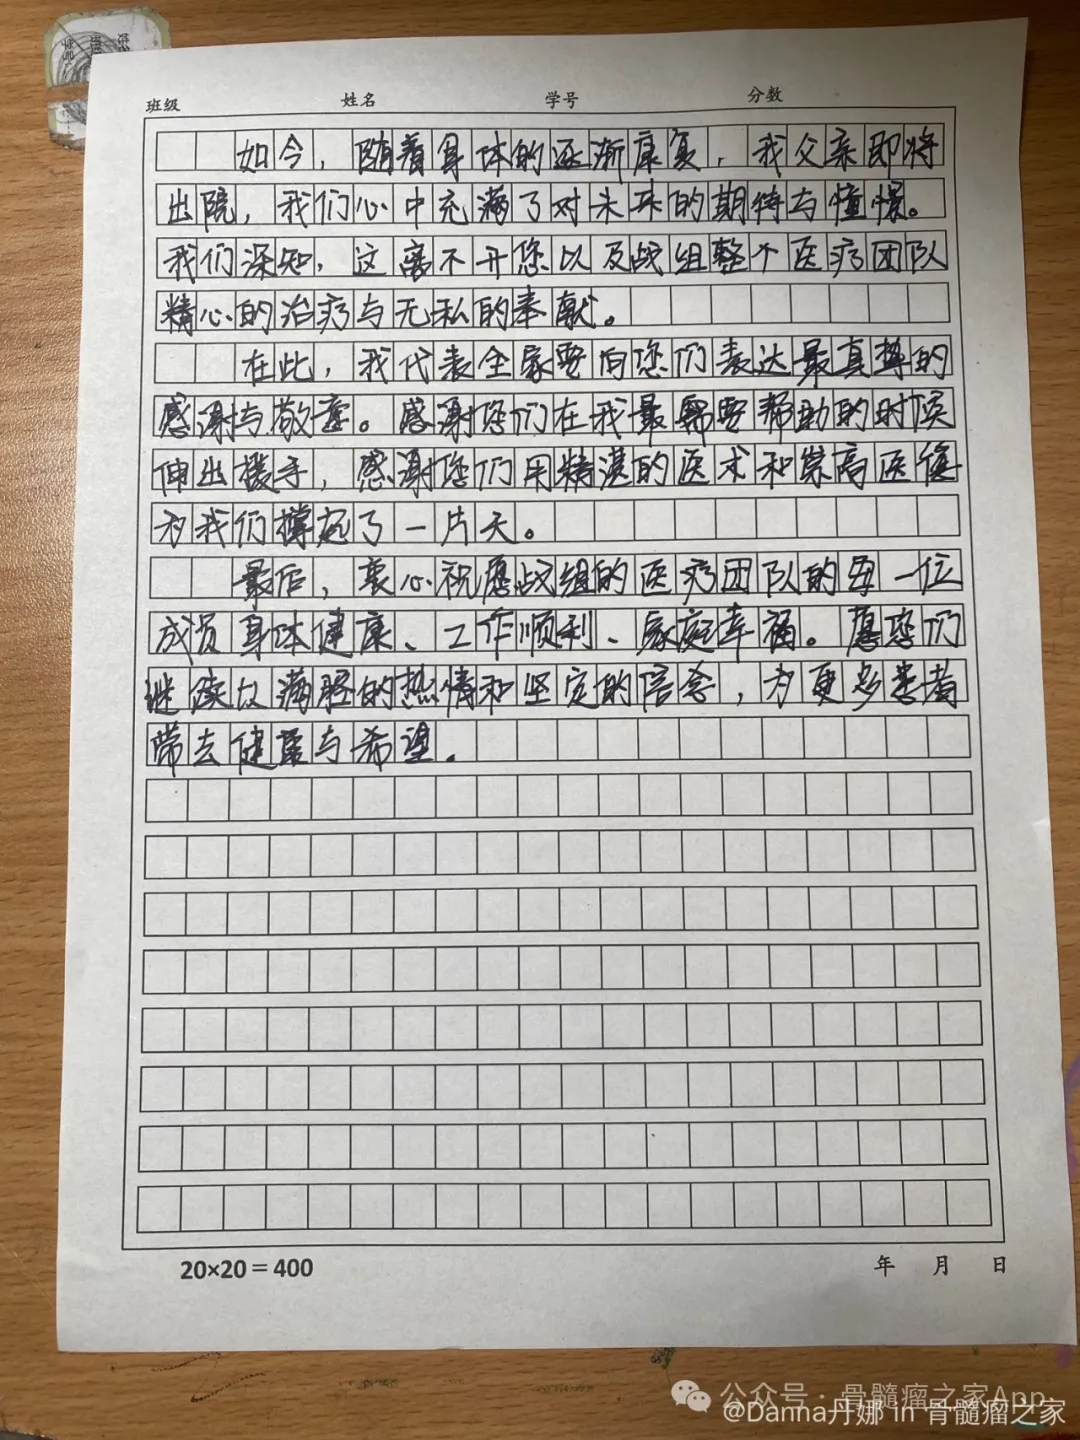 班级 姓名 学号 分数
如今，随着身体的逐渐康复，我父亲即将
出院，我们心中充满了对未来的期待与憧憬。
我们深知，这离不开您以及战组整个医疗团队
精心的治疗与无私的奉献。
在此，我代表全家要向您们表达最真挚的
感谢与敬意。感谢您们在我最需要帮助的时候
伸出援手，感谢您们用精湛的医术和崇高医德
为我们撑起了一片天。
最后，衷心祝愿战组的医疗团队的每一位
成员身体健康、工作顺利、家庭幸福。愿您们
继续以满腔的热情和坚定的信念，为更多患者
带去健康与希望。
20×20＝400 年 月 日
公众号·骨髓瘤之家App
@Danna丹娜 in 骨髓瘤之家